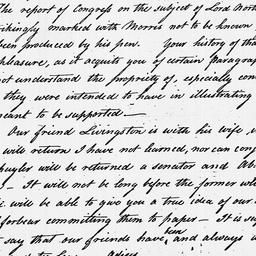 The report of Congress on the subject of Lord Nort
rikingly marked with Morris not to be known
been produced by his pen. Your history of tha
pleasure, as it acquits you of certain paragrap
not understand the propriety of, especially con
they were intended to have in illustrating
meant to be supported—
Our friend Livingston is with his wife,
will return I have not learned, nor can conj
huyler will be returned a senator and Ab
— It will not be long before the former wh
e will be able to give you a true idea of our
forbear committing them to paper— It is su
say that our friends have been, and always w